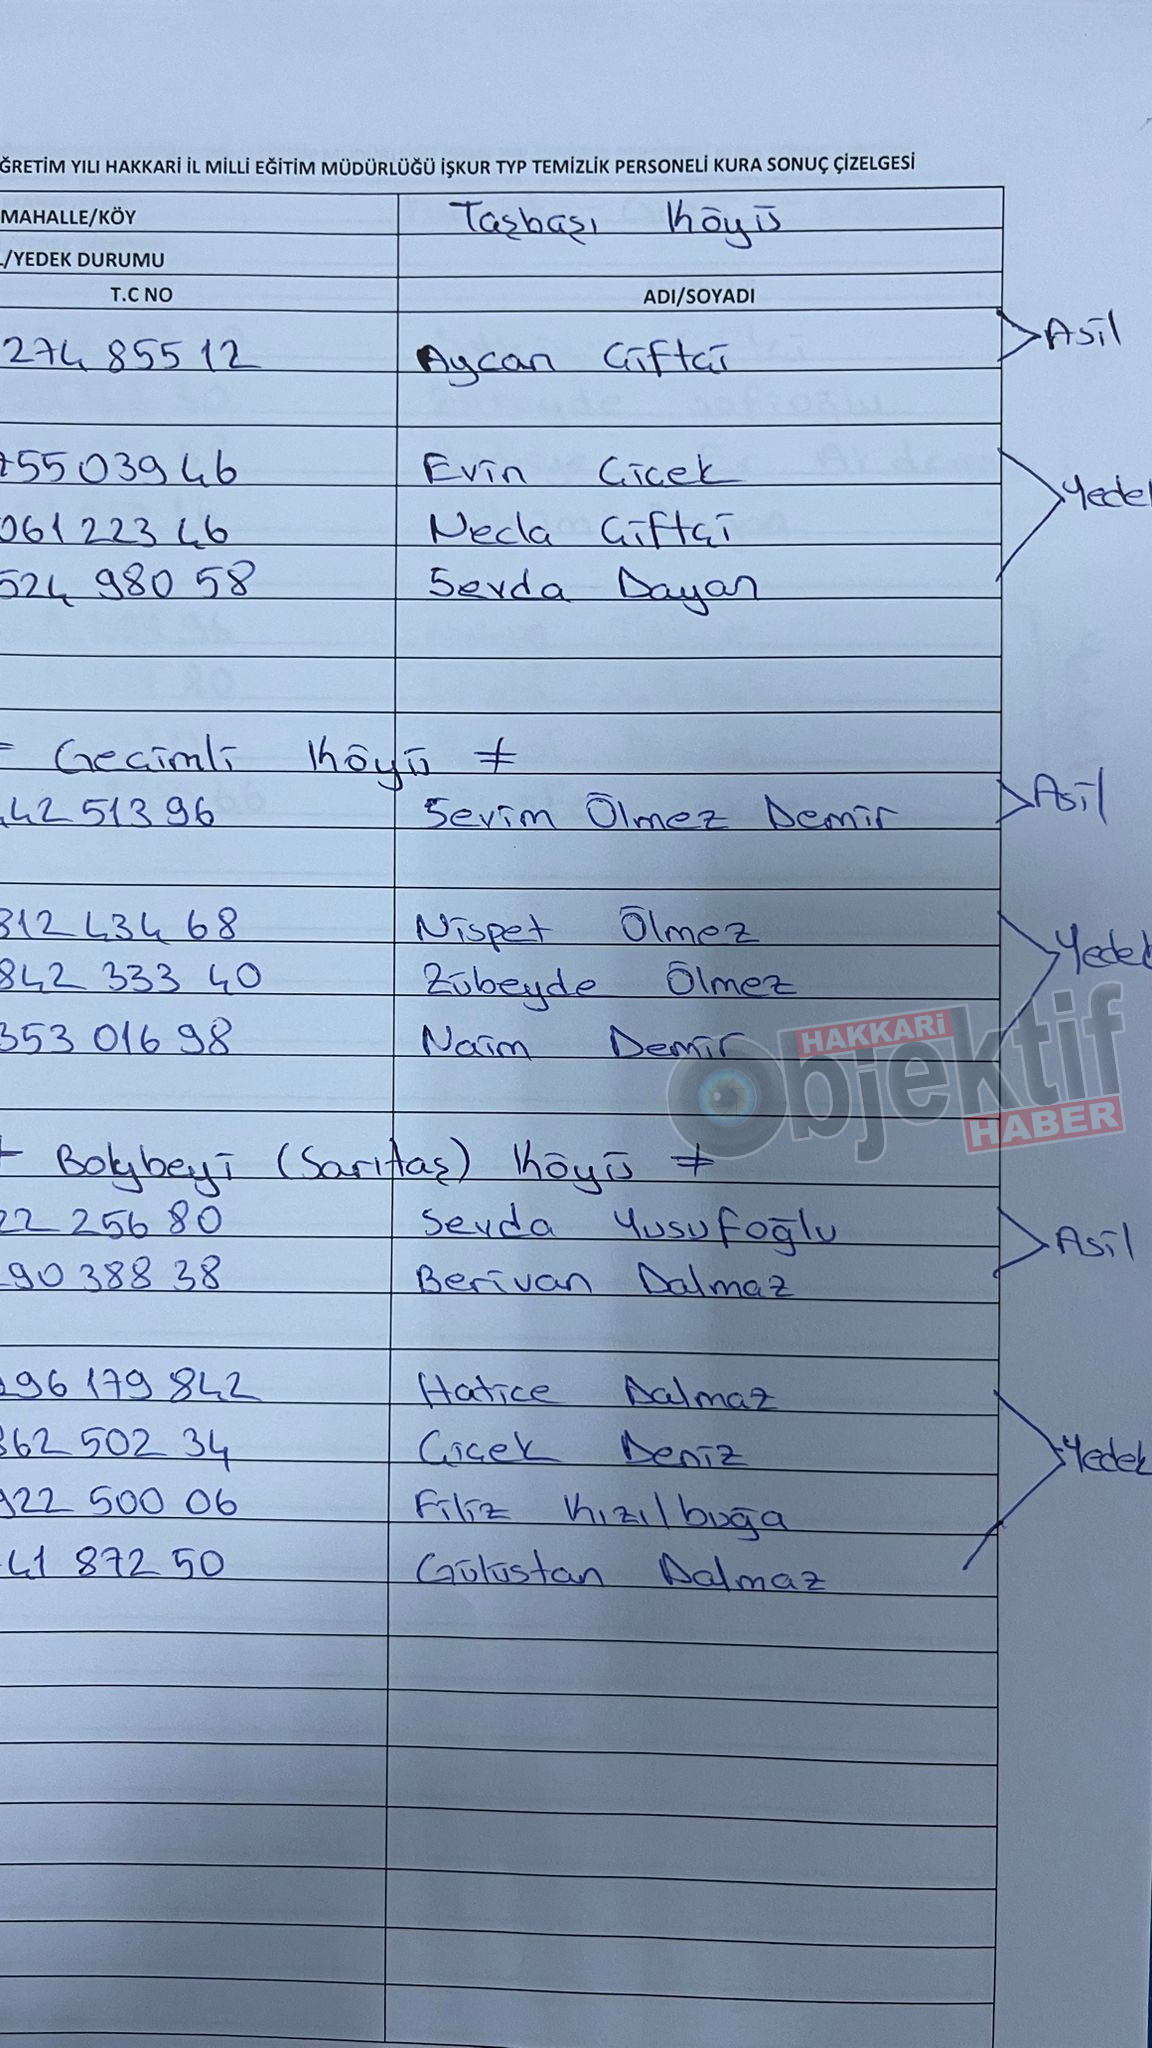 ĞRETİM YILI HAKKARİ İL MİLLİ EĞİTİM MÜDÜRLÜĞÜ İŞKUR TYP TEMİZLİK PERSONELİ KURA SONUÇ ÇİZELGESİ
MAHALLE/KÖY Taşbaşı Köyü
L/YEDEK DURUMU
T.C NO ADI/SOYADI
274 855 12 Aycan Çiftçi Asil
755 039 46 Evin Çiçek Yedek
061 223 46 Necla Çiftçi
524 980 58 Sevda Dayan
Geçimli Köyü
442 513 96 Sevim Ölmez Demir Asil
812 434 68 Nispet Ölmez Yedek
842 333 40 Zübeyde Ölmez
353 016 98 Naim Demir
HAKKARİ Objektif HABER
Bolybeyi (Sarıtaş) Köyü
22 256 80 Sevda Yusufoğlu Asil
90 388 38 Berivan Dalmaz
296 179 842 Hatice Dalmaz
362 502 34 Çiçek Deniz Yedek
922 500 06 Filiz Kızılbuğa
41 872 50 Gülüstan Dalmaz